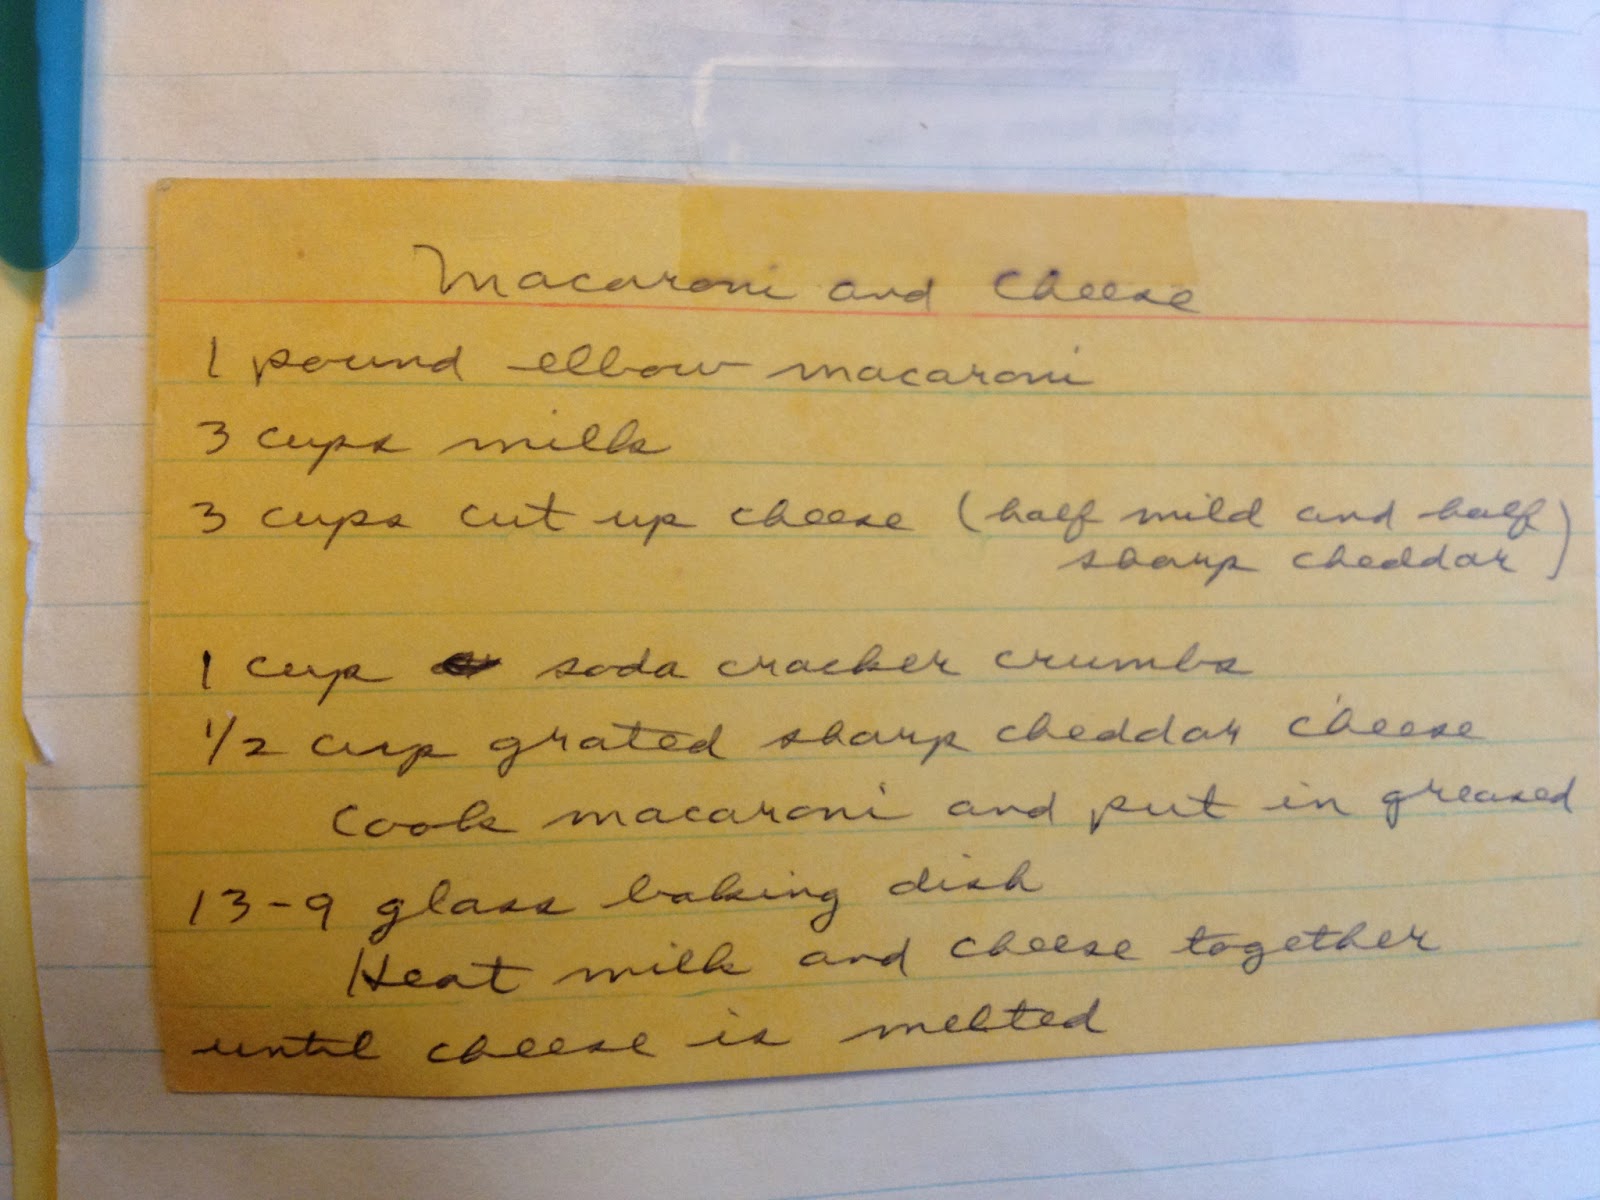 Macaroni and Cheese
1 pound elbow macaroni
3 cups milk
3 cups cut up cheese (half mild and half
sharp cheddar)
1 cup soda cracker crumbs
1/2 cup grated sharp cheddar cheese
Cook macaroni and put in greased
13-9 glass baking dish
Heat milk and cheese together
until cheese is melted